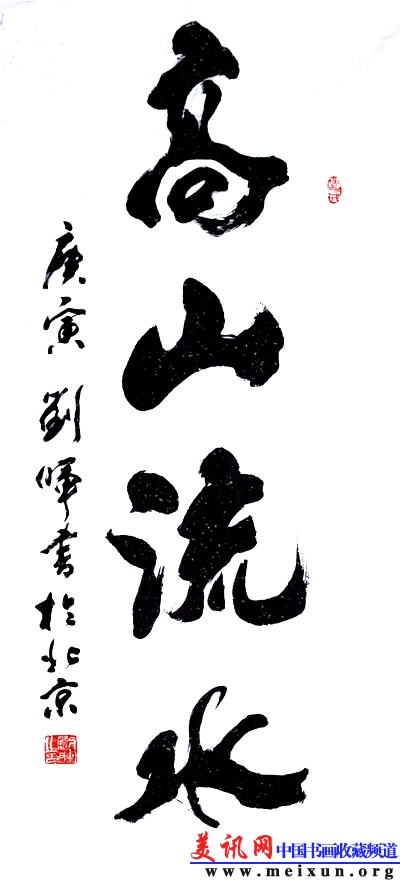 高山流水
庚寅 劉暉書於北京
美讯网 中国书画收藏频道
www.meixun.org